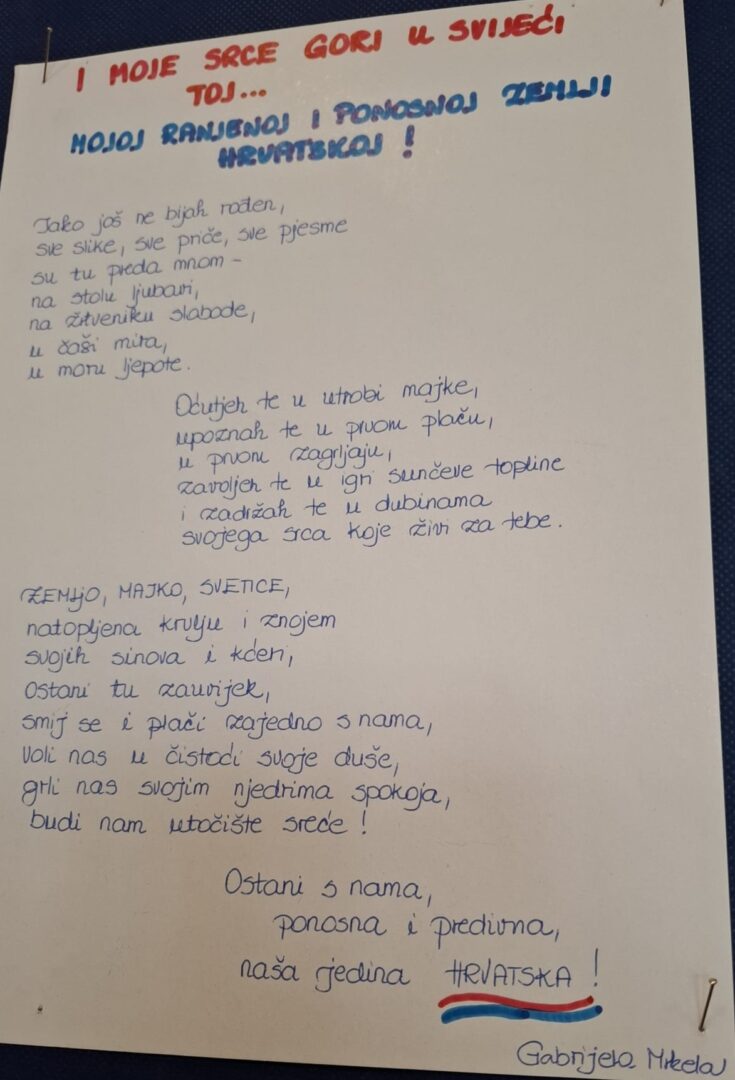 I MOJE SRCE GORI U SVIJEĆI
TOJ...
MOJOJ RANJENOJ I PONOSNOJ ZEMLJI
HRVATSKOJ !
Iako još ne bijah rođen,
sve slike, sve priče, sve pjesme
su tu preda mnom -
na stolu ljubavi,
na žrtveniku slobode,
u čaši mira,
u moru ljepote.
Oćutjeh te u utrobi majke,
upoznah te u prvom plaču,
u prvom zagrljaju,
zavoljeh te u igri sunčeve topline
i zadržah te u dubinama
svojega srca koje živi za tebe.
ZEMLJO, MAJKO, SVETICE,
natopljena krvlju i znojem
svojih sinova i kćeri,
ostani tu zauvijek,
smij se i plači zajedno s nama,
voli nas u čistoći svoje duše,
grli nas svojim njedrima spokoja,
budi nam utočište sreće !
Ostani s nama,
ponosna i predivna,
naša jedina HRVATSKA !
Gabrijela Mrkela